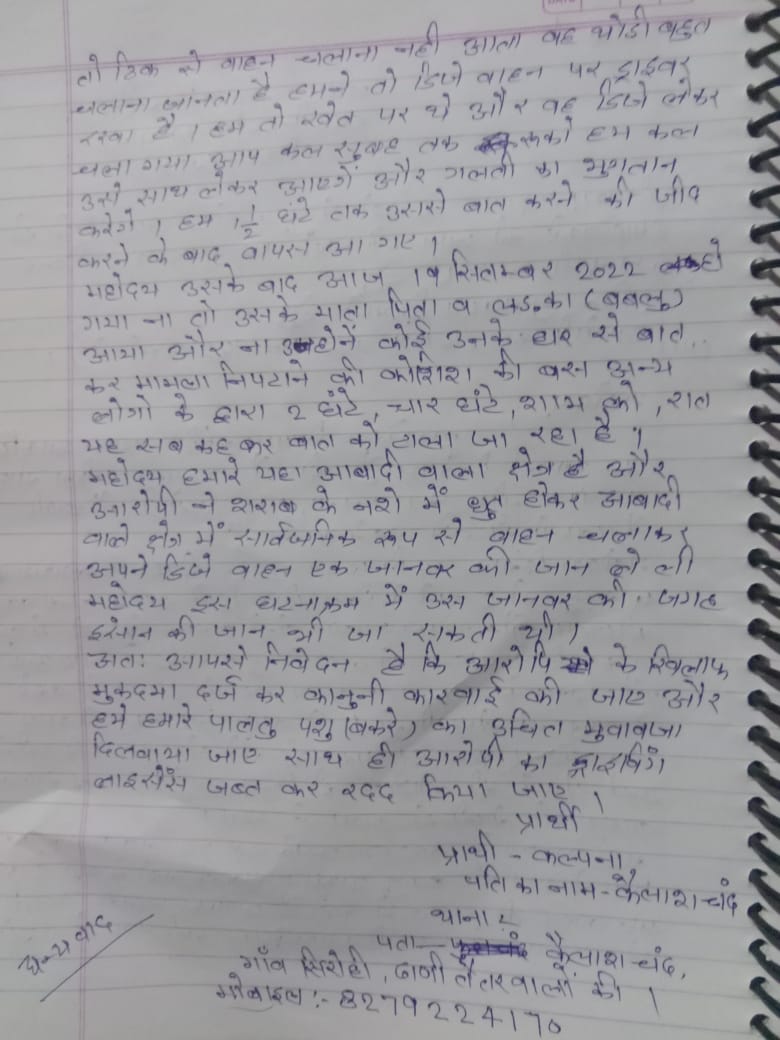 तो ठिक से वाहन चलाना नही आता वह थोडी बहुत
चलाना जानता है हमने तो डिजे वाहन पर ड्राइवर
रखा है । हम तो खेत पर थे और वह डिजे लेकर
चला गया आप कल सुबह तक रूको हम कल
उसे साथ लेकर आएगें और गलती का भुगतान
करेगे । हम 1 1/2 घंटे तक उससे बात करने की जीद
करने के बाद वापस आ गए ।
महोदय उसके बाद आज 19 सितम्बर 2022 हो
गया ना तो उसके माता पिता व लड़का (बबलु)
आया और ना उन्होनें कोई उनके घर से बात
कर मामला निपटाने की कोशिश की बस अन्य
लोगो के द्वारा 2 घंटे, चार घंटे, शाम को, रात
यह सब कह कर बात को टाला जा रहा है ।
महोदय हमारे यहा आबादी वाला क्षेत्र है और
आरोपी ने शराब के नशे में धुत होकर आबादी
वाले क्षेत्र में सार्वजनिक रूप से वाहन चलाकर
अपने डिजे वाहन एक जानवर की जान ले ली
महोदय इस घटनाक्रम में उस जानवर की जगह
इंसान की जान भी जा सकती थी ।
अतः आपसे निवेदन है कि आरोपि के खिलाफ
मुकदमा दर्ज कर कानुनी कारवाई की जाए और
हमे हमारे पालतु पशु (बकरे) का उचित मुवावजा
दिलवाया जाए साथ ही आरोपी का ड्राइविंग
लाइसेंस जब्त कर रदद किया जाए ।
प्रार्थी
प्रार्थी - कल्पना
पति का नाम - कैलाश चंद
थाना :
पता - कैलाश चंद,
गाँव सिरोही, ढाणी तैतरवालों की ।
मोबाइल :- 8279224170
धन्यवाद